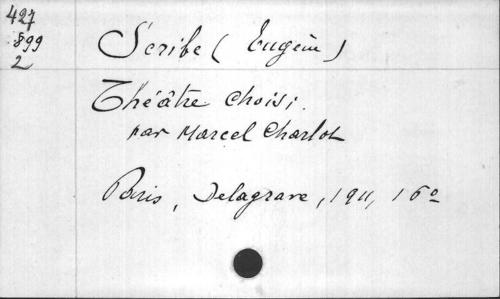 427
899
2
Scribe (Eugène)
Théâtre choisi.
par Marcel Charlot
Paris, Delagrave, 1911, 16º